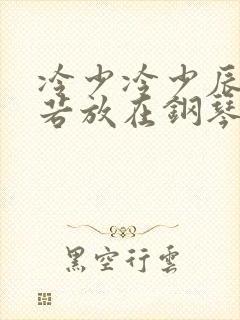 冷少冷少辰
若放在鋼琴
黑空行雲